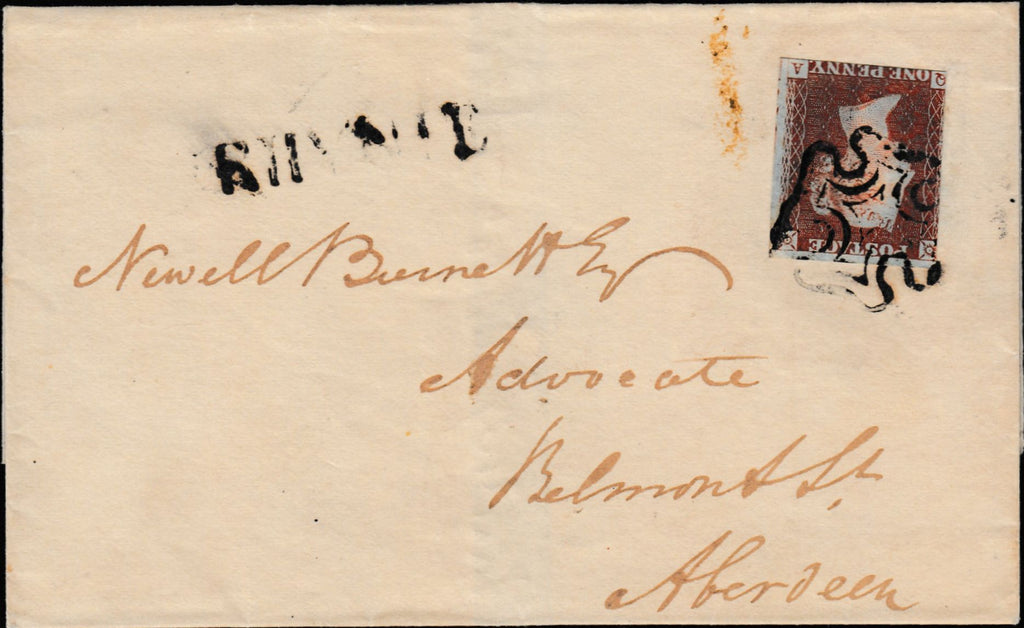 A ONE PENNY Q
POSTAGE
Newell Burnett Esq
Advocate
Belmont St.
Aberdeen